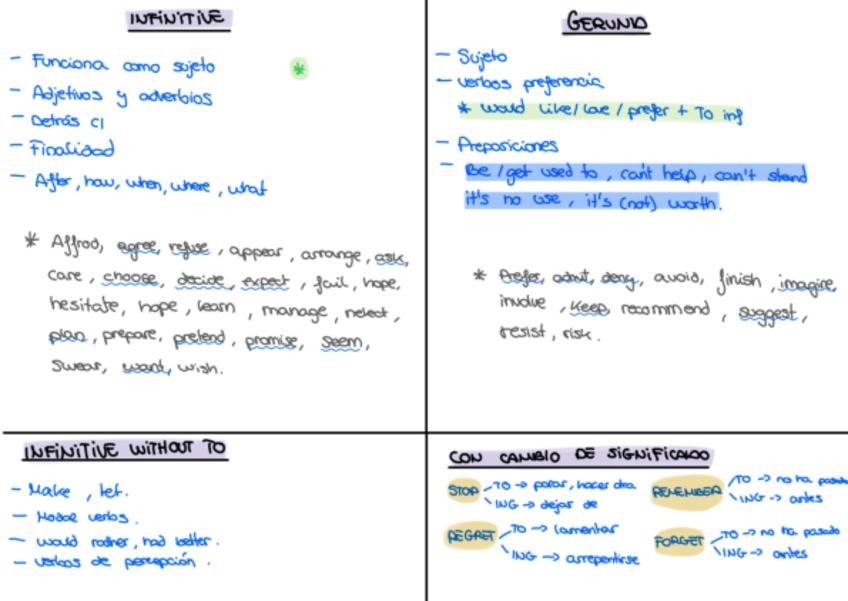 INFINITIVE
- Funciona como sujeto *
- Adjetivos y adverbios
- Detrás CI
- Finalidad
- After, how, when, where, what
* Affrod, agree, refuse, appear, arrange, ask,
care, choose, decide, expect, fail, hope,
hesitate, hope, learn, manage, nelect,
plan, prepare, pretend, promise, seem,
swear, want, wish.
GERUND
- Sujeto
- verbos preferencia
* would like/love/prefer + TO inf
- Preposiciones
- Be/get used to, can't help, can't stand
it's no use, it's (not) worth.
* Prefer, admit, deny, avoid, finish, imagine,
involve, keep, recommend, suggest,
resist, risk.
INFINITIVE WITHOUT TO
- Make, let.
- Modal verbs.
- would rather, had better.
- verbos de percepción.
CON CAMBIO DE SIGNIFICADO
STOP TO → parar, hacer otra
ING → dejar de
REMEMBER TO → no ha pasado
ING → antes
REGRET TO → lamentar
ING → arrepentirse
FORGET TO → no ha pasado
ING → antes